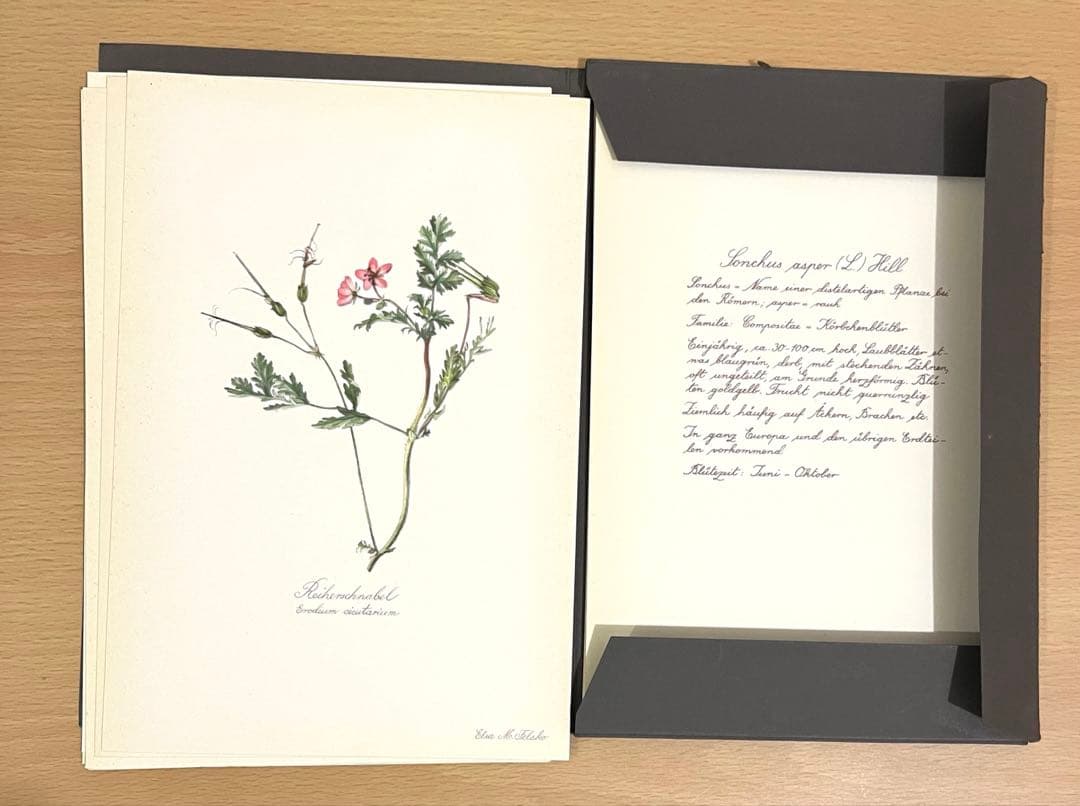 Reiherschnabel
Erodium cicutarium
Elsa M. Felsko
Sonchus asper (L.) Hill
Sonchus = Name einer distelartigen Pflanze bei
den Römern; asper = rauh
Familie: Compositae = Körbchenblütler
Einjährig, ca. 30-100 cm hoch, Laubblätter et-
was blaugrün, derb, mit stechenden Zähnen,
oft ungeteilt, am Grunde herzförmig. Blü-
ten goldgelb. Frucht nicht querrunzlig
Ziemlich häufig auf Äckern, Brachen etc.
In ganz Europa und den übrigen Erdtei-
len vorkommend
Blütezeit: Juni - Oktober